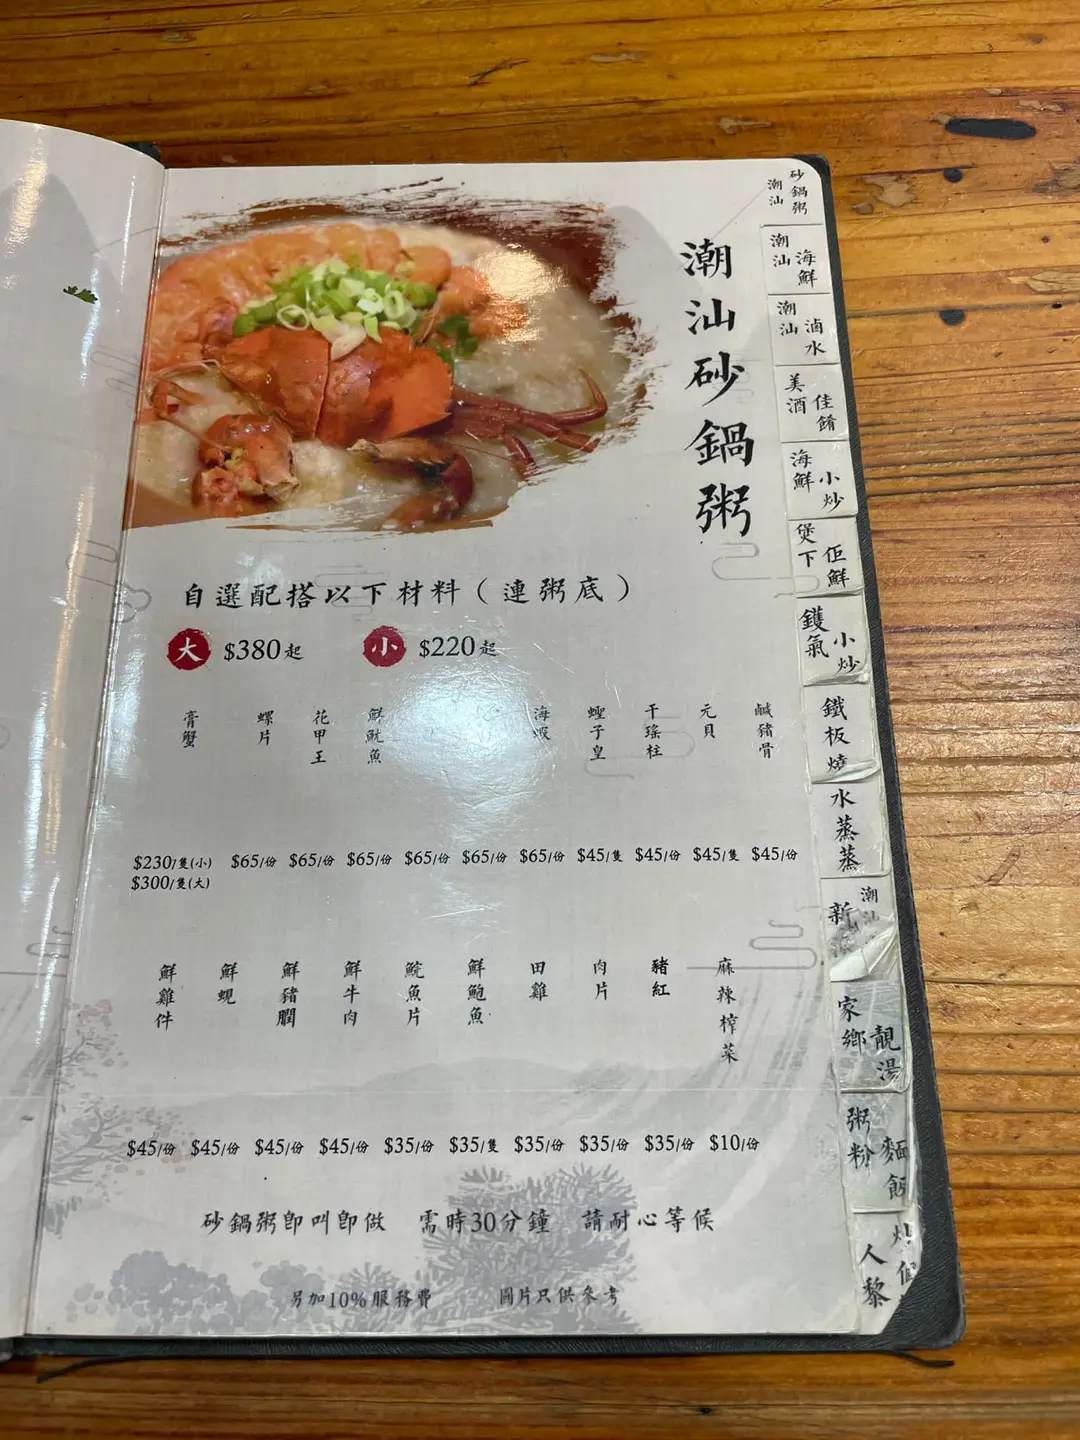 潮汕砂鍋粥
自選配搭以下材料（連粥底）
大 $380起 小 $220起
膏蟹
螺片
花甲王
鮮魷魚
海蝦
蟶子皇
干瑤柱
元貝
鹹豬骨
$230/隻(小) $65/份 $65/份 $65/份 $65/份 $65/份 $65/份 $45/隻 $45/份 $45/隻 $45/份
$300/隻(大)
鮮雞件
鮮蜆
鮮豬膶
鮮牛肉
鯇魚片
鮮鮑魚
田雞
肉片
豬紅
麻辣榨菜
$45/份 $45/份 $45/份 $45/份 $35/份 $35/隻 $35/份 $35/份 $35/份 $10/份
砂鍋粥即叫即做 需時30分鐘 請耐心等候
另加10%服務費 圖片只供參考
潮汕砂鍋粥
潮汕海鮮
潮汕滷水
美酒佳餚
海鮮小炒
煲下佢鮮
鑊氣小炒
鐵板燒
水蒸蒸
潮汕
新
家鄉靚湯
粥粉麵飯